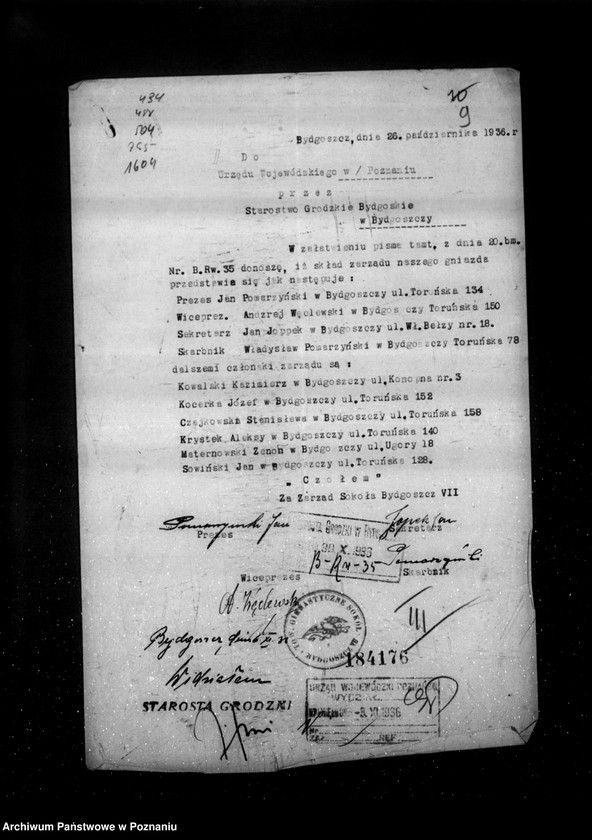 434
504
1604
10
9
Bydgoszcz, dnia 26. października 1936. r
Do
Urzędu Wojewódskiego w / Poznaniu
przez
Starostwo Grodzkie Bydgoskie
w Bydgoszczy
W załatwieniu pisma tamt, z dnia 20.bm.
Nr. B.Rw.35 donoszę, iż skład zarządu naszego gniazda
przedstawia się jak następuje :
Prezes Jan Pomarzyński w Bydgoszczy ul.Toruńska 134
Wiceprez. Andrzej Węclewski w Bydgoszczy Toruńska 150
Sekretarz Jan Joppek w Bydgoszczy ul.Wł.Bełzy nr.18.
Skarbnik Władysław Pomarzyński w Bydgoszczy Toruńska 78
dalszemi członki zarządu są :
Kowalski Kazimierz w Bydgoszczy ul.Konopna nr.3
Kocerka Józef w Bydgoszczy ul.Toruńska 152
Czajkowska Stanisława w Bydgoszczy ul.Toruńska 158
Krystek Aleksy w Bydgoszczy ul.Toruńska 140
Maternowski Zenon w Bydgoszczy ul.Ugory 18
Sowiński Jan w Bydgoszczy ul.Toruńska 128.
„ Czołem "
Za Zarząd Sokoła Bydgoszcz VII
Pomarzyński Jan
Prezes
Sekretarz
30. X. 1936
B-Rw-35
Skarbnik
Wiceprezes
A. Węclewski
TOW. GIMNASTYCZNE SOKÓŁ
BYDGOSZCZ
III
184176
STAROSTA GRODZKI
URZĄD WOJEWÓDZKI POZNAŃSKI
WYDZIAŁ
-3. XI. 1936
REF.
Archiwum Państwowe w Poznaniu